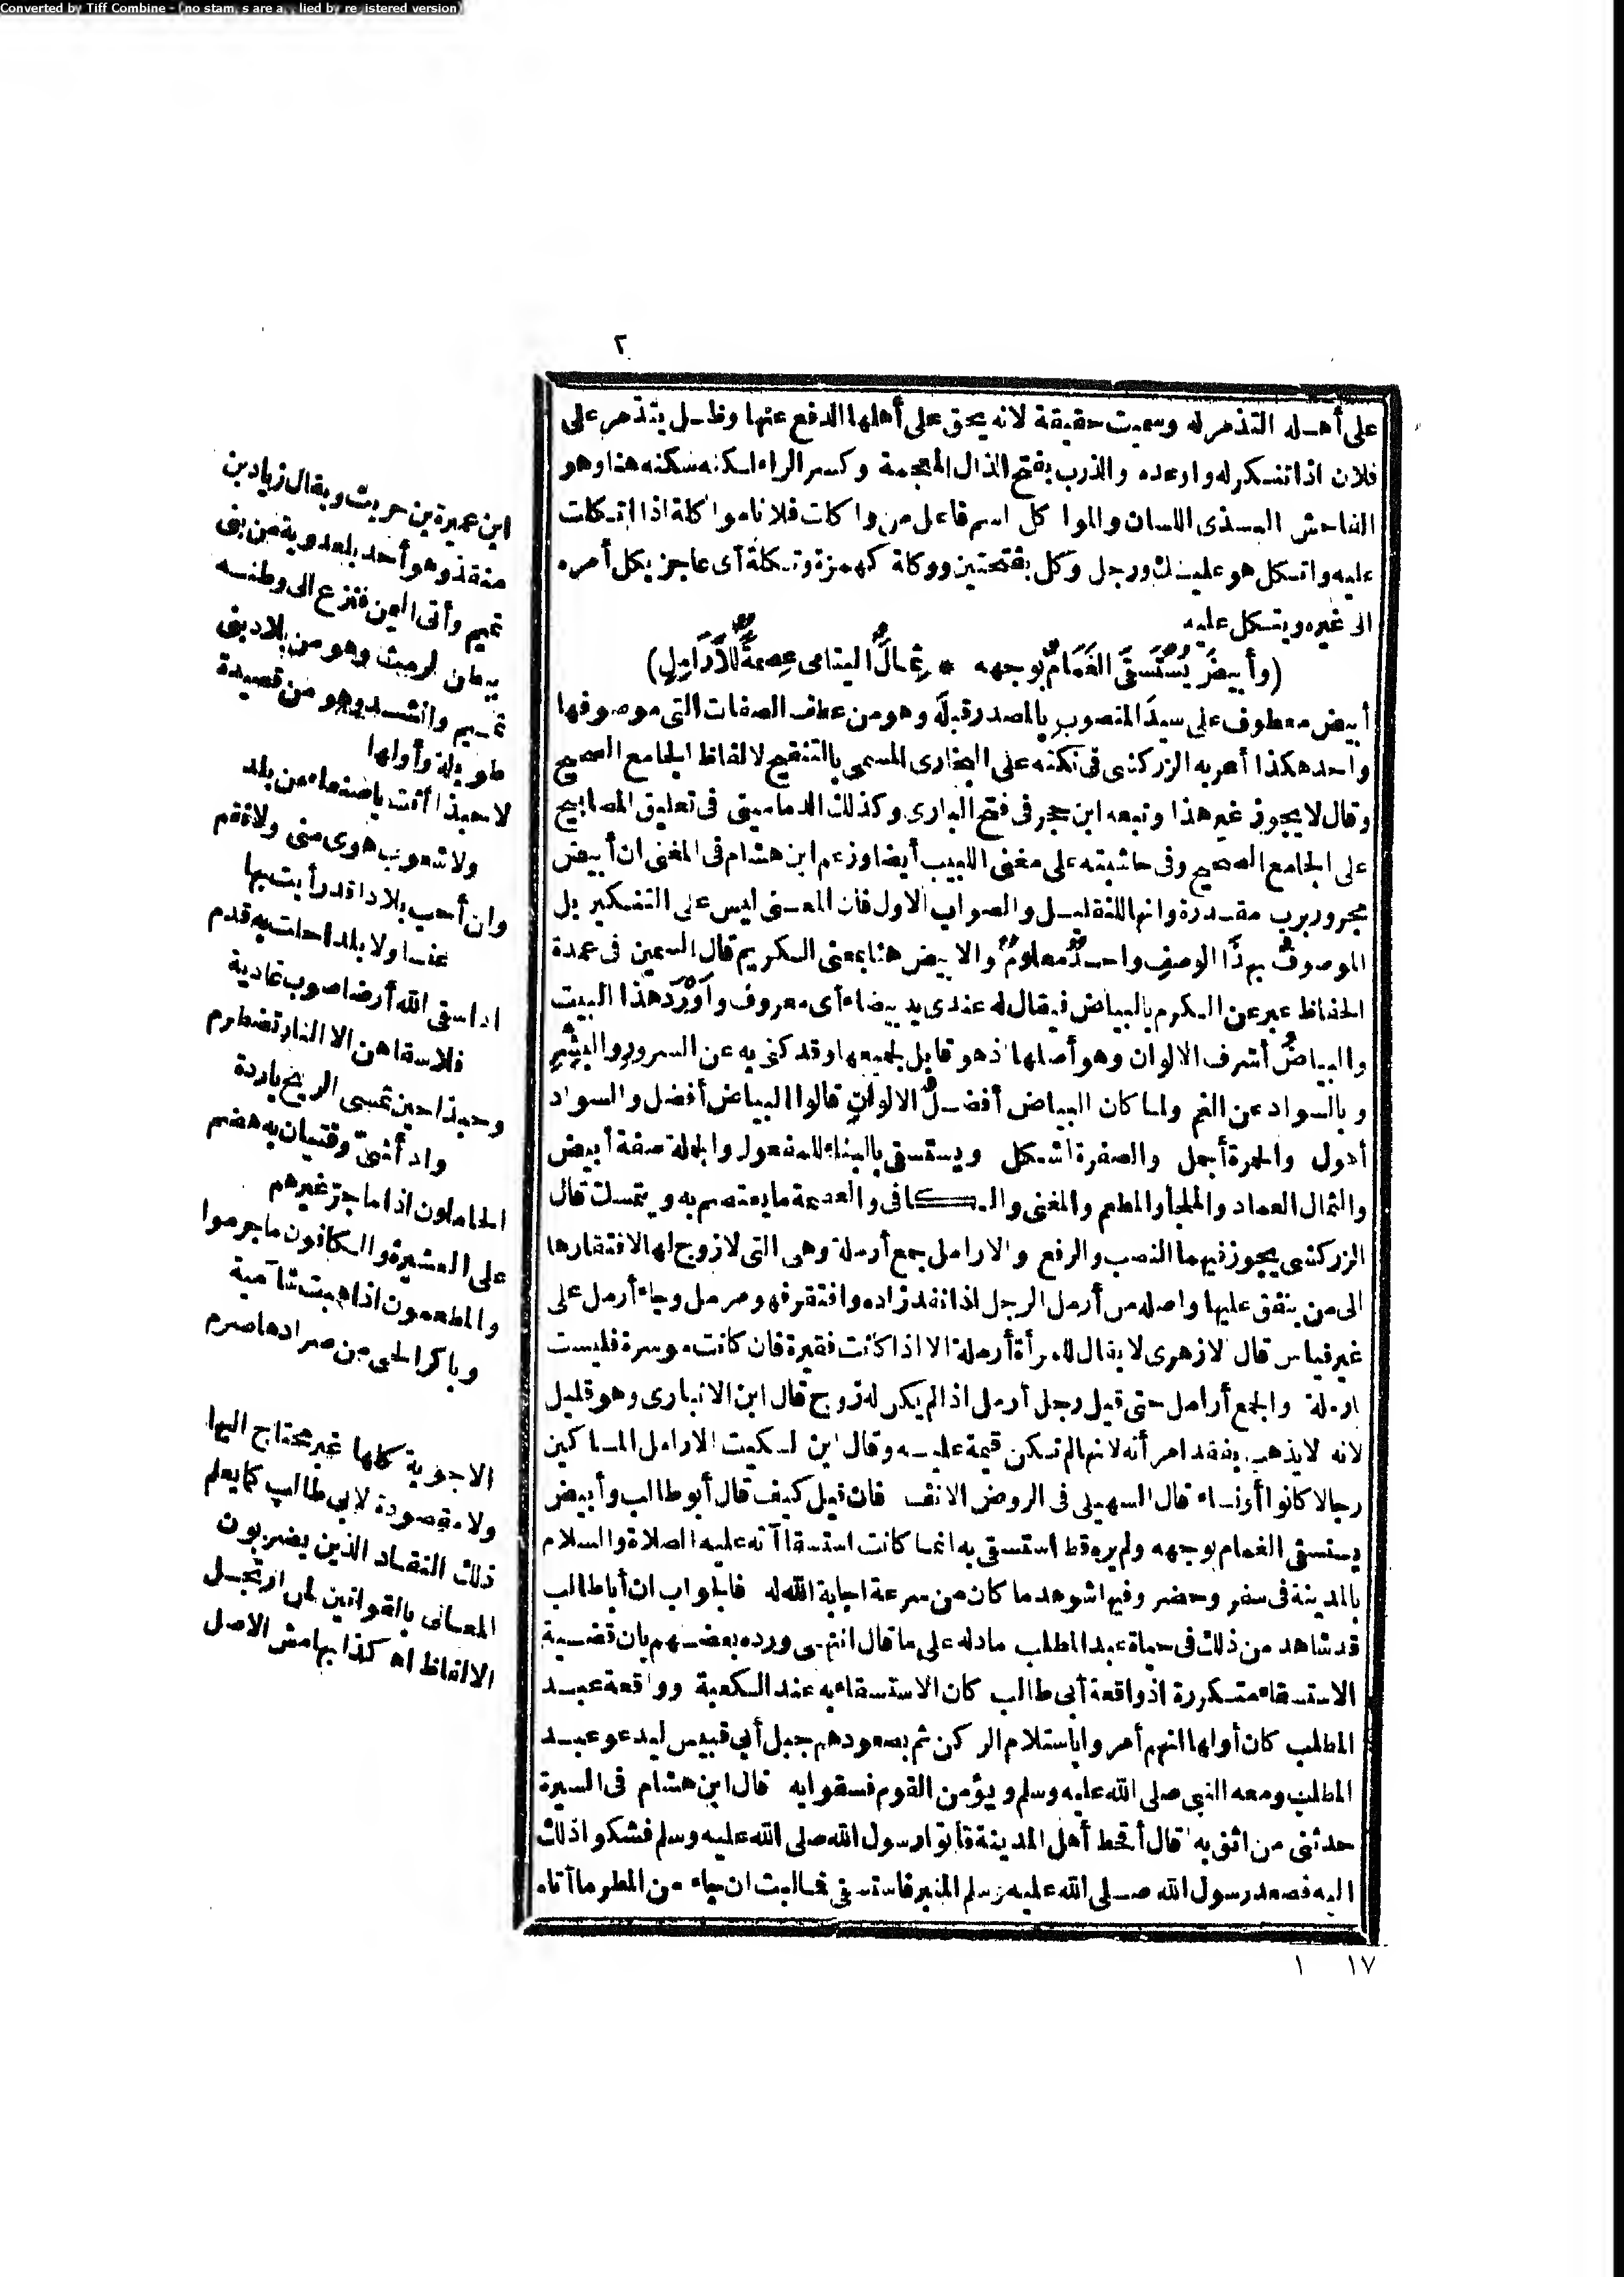 Converted by Tiff Combine - (no stamps are applied by registered version)
٢
على أهله التذمر له وسميت حقيقة لانه يحق على أهلها الدفع عنها وظل يتذمر على
فلان اذا تنكر له وأوعده والذرب بفتح الذال المعجمة وكسر الراء لكنه سكنه هنا وهو
الفاحش البذى اللسان والموا كل اسم فاعل من واكات فلانا مواكلة اذا اتكلت
عليه واتكل هو عليك ورجل وكل بفتحتين ووكلة كهمزة وتكلة أى عاجز يكل أمره
الى غيره ويتكل عليه
(وأبيضَ يُسْتَسقَى الغَمَامُ بوجهه * ثِمالُ اليتامى عِصمةٌ للأَرامِلِ)
أبيض معطوف على سيدَ المنصوبِ بالمصدر قبله وهو من عطف الصفات التى موصوفها
واحد هكذا أعربه الزركشى فى نكته على البخارى المسمى بالتنقيح لالفاظ الجامع الصحيح
وقال لا يجوز غير هذا وتبعه ابن حجر فى فتح البارى وكذلك الدمامينى فى تعليق المصابيح
على الجامع الصحيح وفى حاشيته على مغنى اللبيب أيضا وزعم ابن هشام فى المغنى ان أبيض
مجرور برب مقدرة وانها للتقليل والصواب الاول فان المعنى ليس على التنكير بل
الموصوفُ بهذا الوصفِ واحدٌ معلومٌ والابيض هنا بمعنى الكريم قال السمين فى عمدة
الحفاظ عبر عن الكرم بالبياض فيقال له عندى يد بيضاء أى معروف وأَوْرَدَ هذا البيت
والبياضُ أشرف الالوان وهو أصلها اذ هو قابل لجميعها وقد كنى به عن السرورِ والبِشْرِ
وبالسواد عن الغم ولما كان البياض أفضلُ الالوانِ قالوا البياض أفضل والسواد
أهول والحمرة أجمل والصفرة اشكل ويستسقى بالبناء للمفعول والجملة صفة أبيض
والثمال العماد والملجأ والمطعم والمغنى والكافى والعصمة ما يعتصم به ويتمسك قال
الزركشى يجوز فيهما النصب والرفع والارامل جمع أرملة وهى التى لا زوج لها لافتقارها
الى من ينفق عليها واصله من أرمل الرجل اذا نفد زاده وافتقر فهو مرمل وجاء أرمل على
غير قياس قال الازهرى لا يقال للمرأة أرملة الا اذا كانت فقيرة فان كانت موسرة فليست
ارملة والجمع أرامل حتى قيل رجل أرمل اذا لم يكن له زوج قال ابن الانبارى وهو قليل
لانه لا يذهب بفقد امرأته لانها لم تكن قيمة عليه وقال ابن السكيت الارامل المساكين
رجالا كانوا أو نساء قال السهيلى فى الروض الانف فان قيل كيف قال أبو طالب وأبيض
يستسقى الغمام بوجهه ولم يره قط استسقى به انما كانت استسقاآته عليه الصلاة والسلام
بالمدينة فى سفر وحضر وفيها شوهد ما كان من سرعة اجابة الله له فالجواب ان أبا طالب
قد شاهد من ذلك فى حياة عبد المطلب ما دله على ما قال انتهى ورده بعضهم بان قضية
الاستسقاء متكررة اذ واقعة أبى طالب كان الاستسقاء به عند الكعبة وواقعة عبد
المطلب كان أولها انهم أمروا باستلام الركن ثم بصعودهم جبل أبى قبيس ليدعو عبد
المطلب ومعه النبى صلى الله عليه وسلم ويؤمن القوم فسقوا به قال ابن هشام فى السيرة
حدثنى من اثق به قال أقحط أهل المدينة فأتوا رسول الله صلى الله عليه وسلم فشكوا ذلك
اليه فصعد رسول الله صلى الله عليه وسلم المنبر فاستسقى فما لبث ان جاء من المطر ما أتاه
١٧ ١
ابن عميرة بن حريث ويقال زياد بن
منقذ وهو أحد بلعدوية من بنى
تميم وأتى اليمن فنزع الى وطنه
ببطن الرمث وهو من بلاد بنى
تميم وانشد وهو من قصيدة
طويلة وأولها
لا حبذا أنت يا صنعاء من بلد
ولا شعوب هوى منى ولا نقم
وان أحب بلادا قد رأيت بها
عنسا ولا بلدا حلت به قدم
اذا سقى الله أرضا صوب غادية
فلا سقاهن الا النار تضطرم
وحبذا حين تمسى الريح باردة
وادى أشىّ وفتيان به هضم
الحاملون اذا ما جرّ غيرهم
على العشيرة والكافون ما جرموا
والمطعمون اذا هبت شآمية
وباكر الحى من صرادها صرم
الاجوبة كلها غير محتاج اليها
ولا مقصودة لابى طالب كما يعلم
ذلك النقاد الذين يضربون
المعانى بالقوانين لمن ارتجل
الالفاظ اه كذا بهامش الاصل